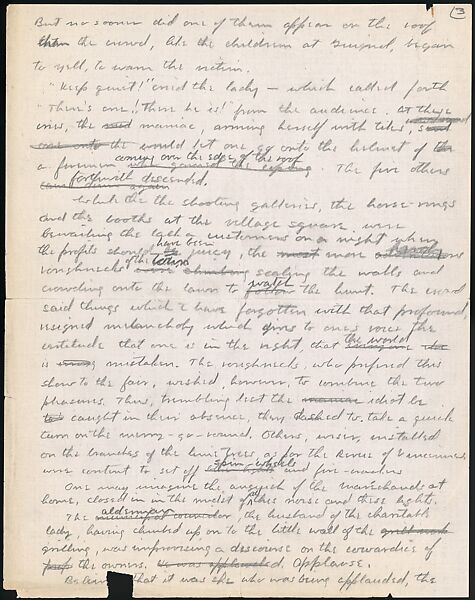 3
But no sooner did one of them appear on the roof
than the crowd, like the children at Guignol, began
to yell, to warn the victim.
"Keep quiet!" cried the lady — which called forth
"There's one! There he is!" from the audience. At these
cries, the maniac, arming herself with tiles, sent
one onto the would let one go onto the helmet of
a fireman coming over the edge of the roof. The five others
forthwith descended.
While the the shooting galleries, the horse-rings
and the booths at the village square were
bewailing the lack of customers on a night when
the profits should have been juicy, the most more
roughnecks of the lot were scaling the walls and
crowding onto the lawn to watch the hunt. The crowd
said things which I have forgotten with that profound,
resigned melancholy which gives to one's voice the
certitude that one is in the right, that the world
is mistaken. The roughnecks, who preferred this
show to the fair, wished, however, to combine the two
pleasures. Thus, trembling lest the maniac idiot be
caught in their absence, they dashed to take a quick
turn on the merry-go-round. Others, wiser, installed
on the branches of the lime trees, as for the Revue of Vincennes,
were content to set off and fire-crackers
One may imagine the anguish of the Marechauds at
home, closed in in the midst of all this noise and these lights.
The municipal councilor alderman, the husband of the charitable
lady, having climbed up on to the little wall of the
grilling, was improvising a discourse on the cowardice of
the owners. He was applauded. Applause.
Believing that it was she who was being applauded, the